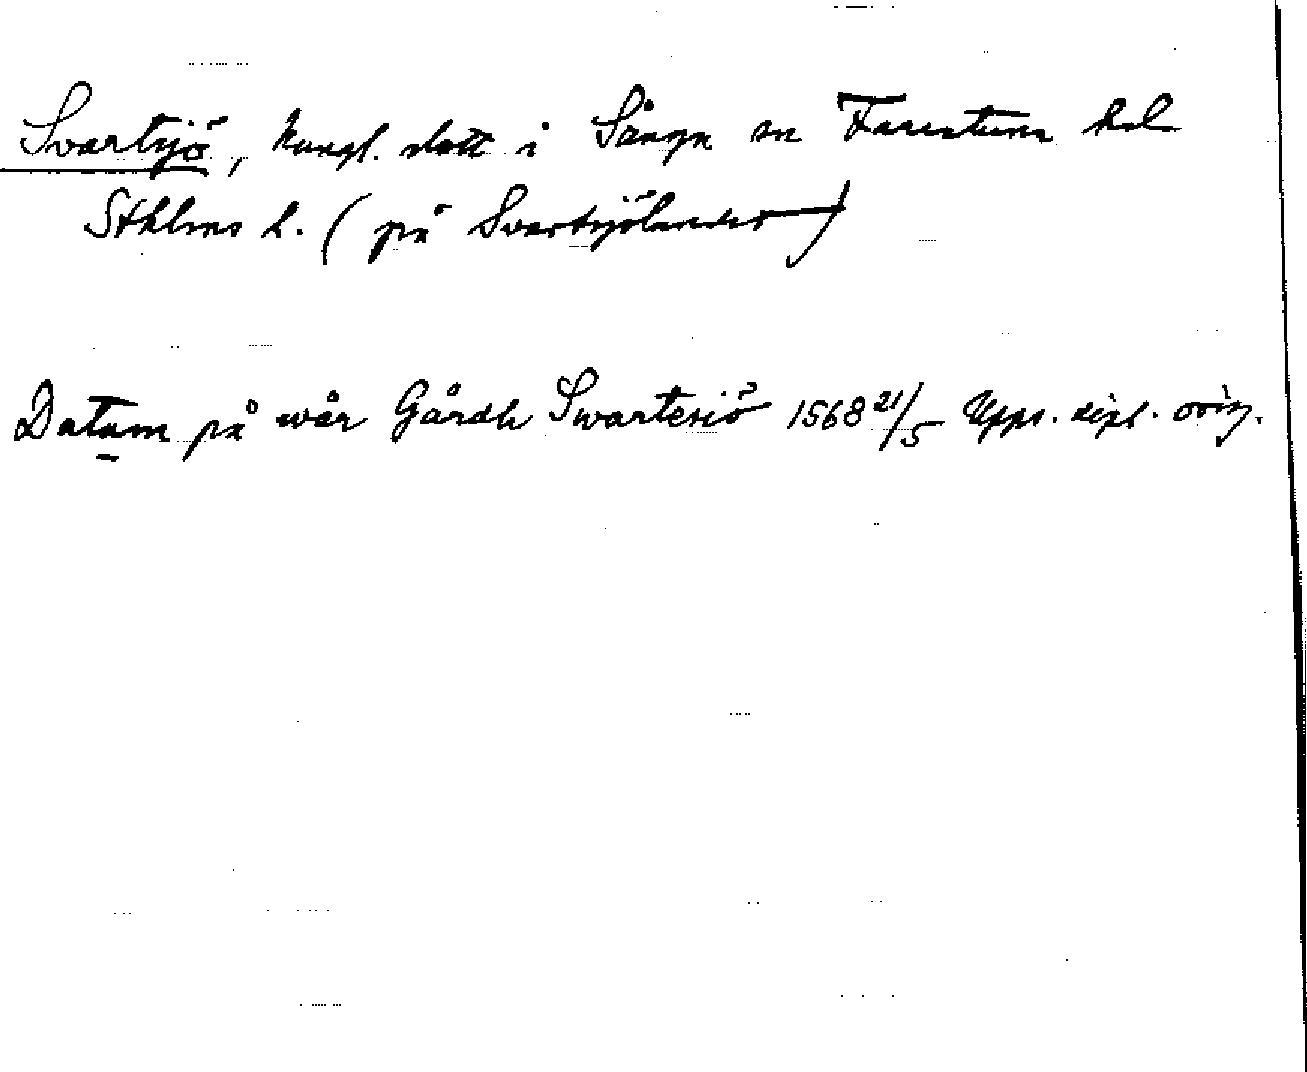 Svartsjö, kungl. slott i Sånga sn Färentuna hd
Sthlms l. (på Svartsjölandet)
Datam på wår Gårdh Swartesiö 1568 21/5 Upps. dipl. orig.